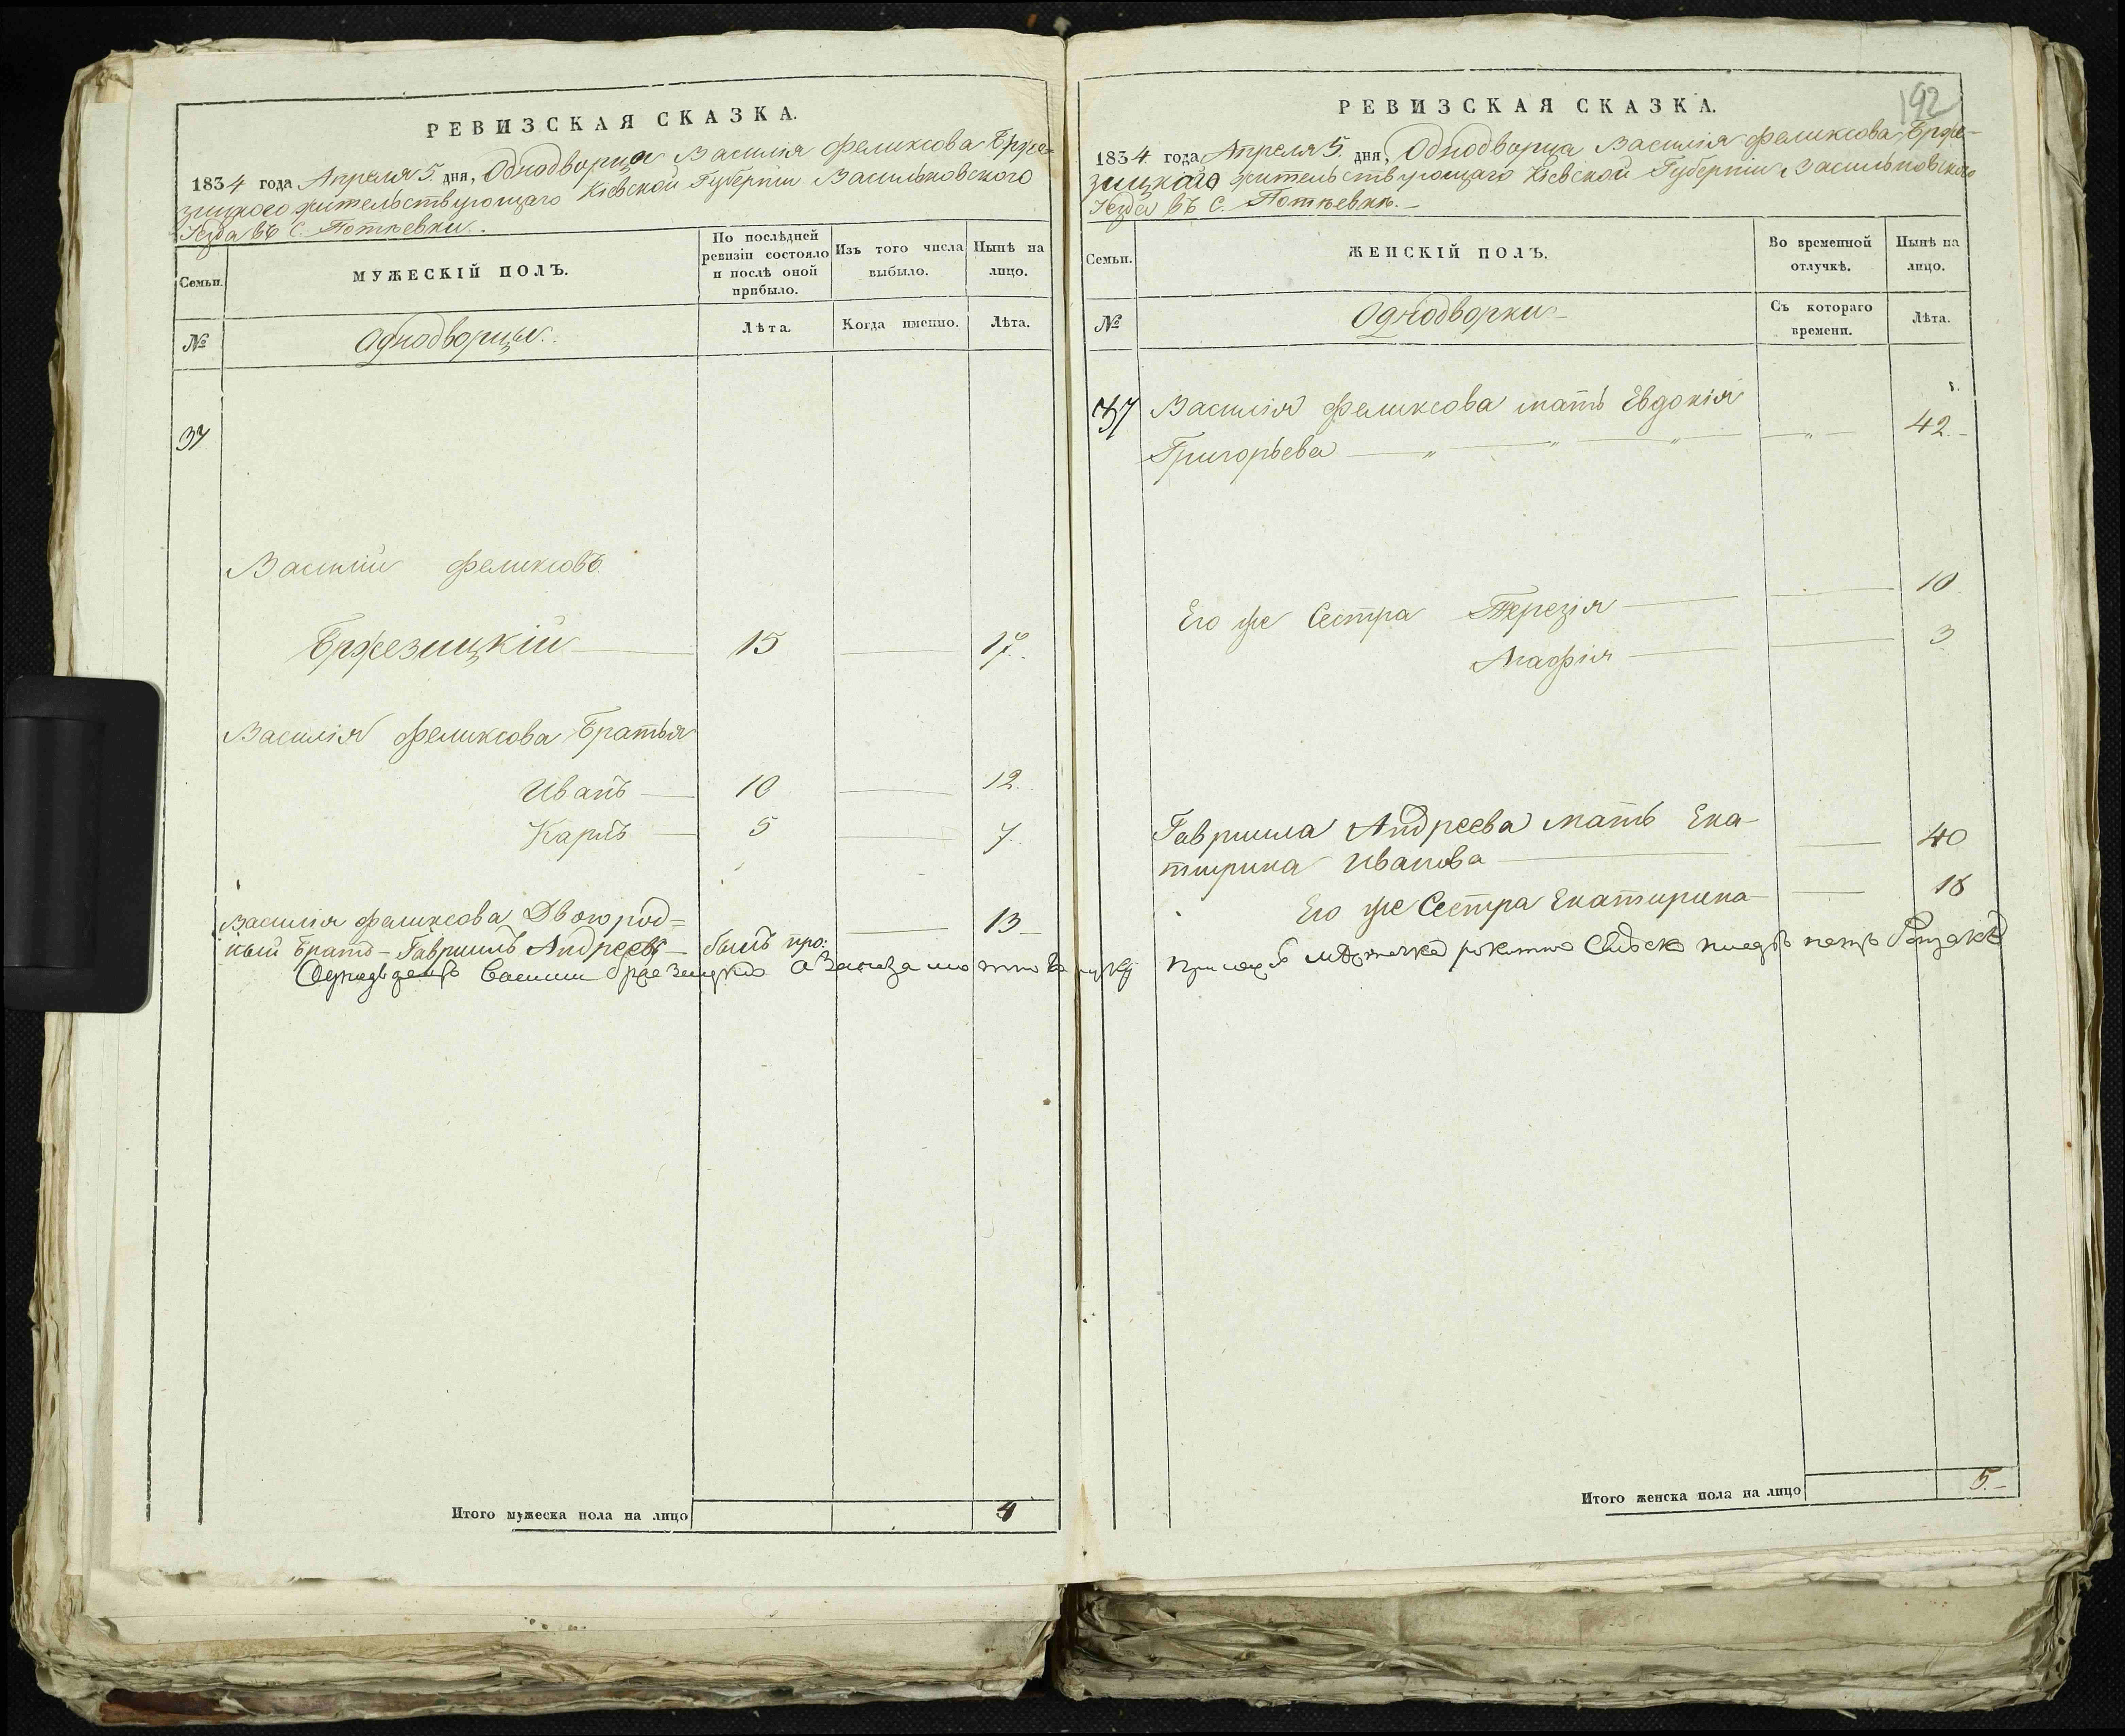 РЕВИЗСКАЯ СКАЗКА.
1834 года Апреля 5. дня, Однодворца Василия Феликсова Брже-
зицкого жительствующаго Кіевской Губерніи Васильковского
Уезда въ С. Потіевки.
Семьи.
МУЖЕСКІЙ ПОЛЪ.
По послѣдней ревизіи состояло и послѣ оной прибыло.
Изъ того числа выбыло.
Нынѣ на лицо.
№
Однодворцы.
Лѣта.
Когда именно.
Лѣта.
37
Василий Феликсовъ
Бржезицкій 15 17.
Василія Феликсова Братья
Иванъ 10 12.
Карлъ 5 7.
Василия Феликсова Двоюрод-
ный Братъ - Гавриилъ Андреевъ - былъ про: 13
Василий
Итого мужеска пола на лицо 4
192
РЕВИЗСКАЯ СКАЗКА.
1834 года Апреля 5. дня, Однодворца Василия Феликсова Брже-
зицкаго жительствующаго Кіевской Губерніи Васильковского
Уезда въ С. Потіевки.
Семьи.
ЖЕНСКІЙ ПОЛЪ.
Во временной отлучкѣ.
Нынѣ на лицо.
№
Однодворки
Съ котораго времени.
Лѣта.
37 Василия Феликсова мать Евдокія
Григорьева 42.
Его же Сестра Терезія 10
Агафія 3.
Гавриила Андреева мать Ека-
тирина Иванова 40
Его же Сестра Екатирина 18
Итого женска пола на лицо 5.